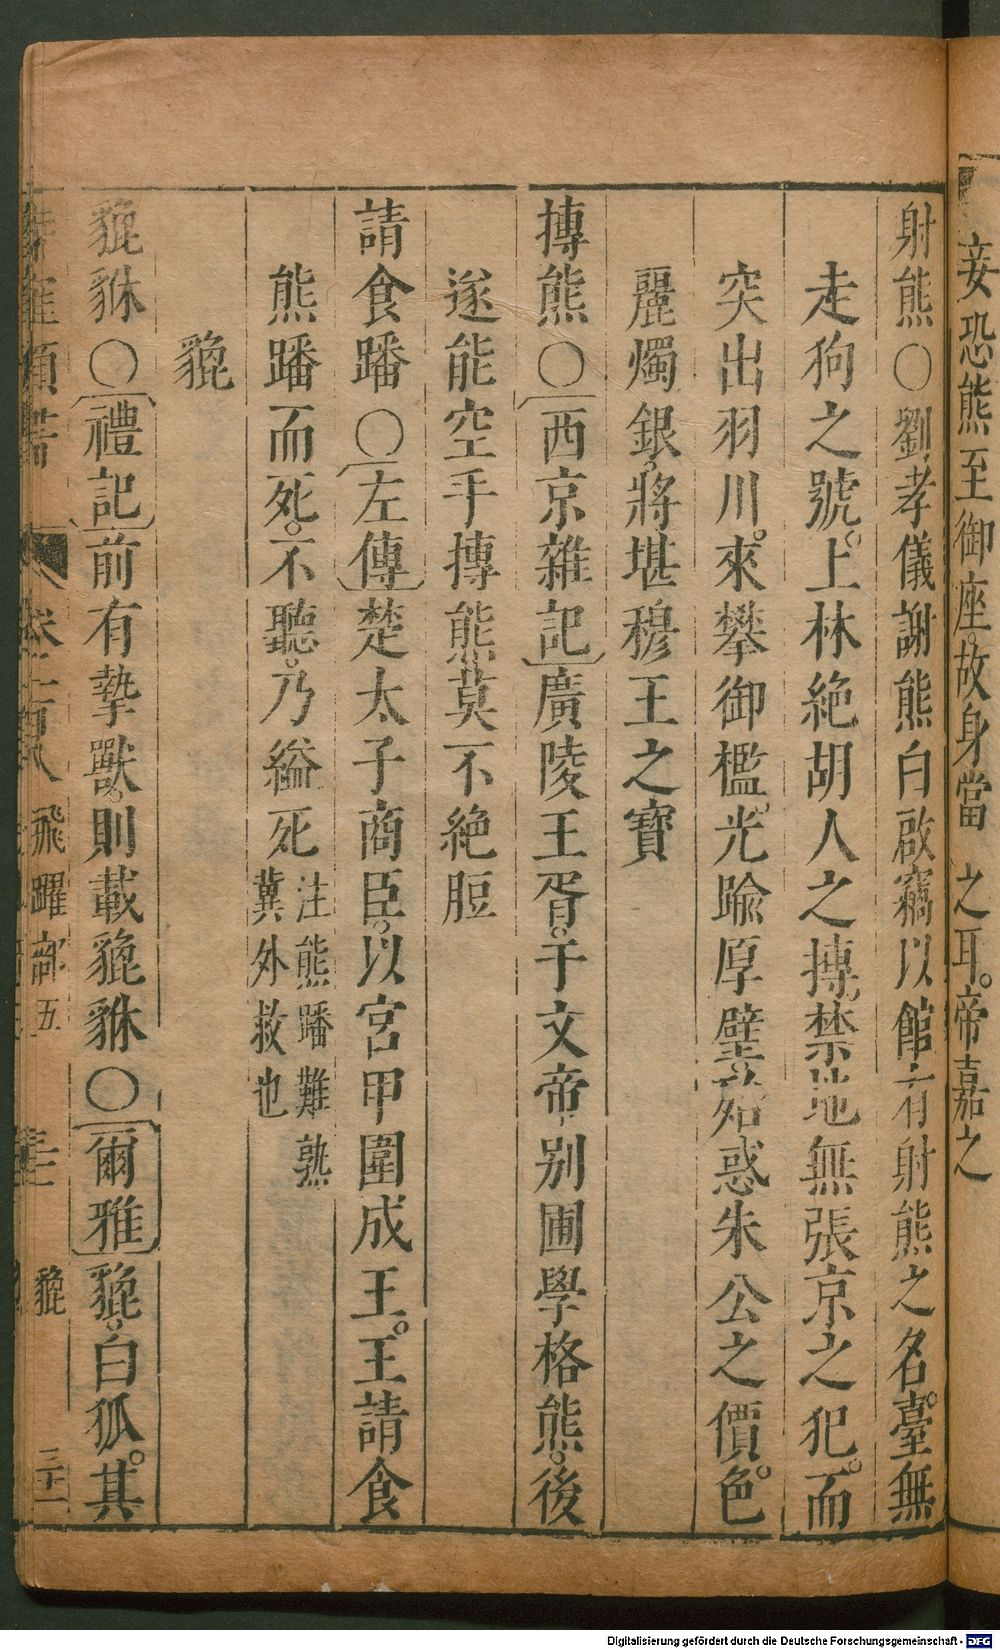 妾恐熊至御座。故身當 之耳。帝嘉之
射熊○劉孝儀謝熊白啟竊以館有射熊之名。臺無
走狗之號。上林絶胡人之搏。禁地無張京之犯。而
突出羽川。來攀御檻。光踰厚璧。始惑朱公之價。色
麗燭銀。將堪穆王之寶
摶熊○西京雜記廣陵王胥。于文帝别圃學格熊。後
遂能空手摶熊莫不絶脰
請食蹯○左傳楚太子商臣。以宮甲圍成王。王請食
熊蹯而死。不聽。乃縊死注熊蹯難熟
冀外救也
貔
貔貅○禮記前有摯獸。則載貔貅○爾雅貔。白狐。其
唐類函 卷一百 飛躍部五 貔 三十一
Digitalisierung gefördert durch die Deutsche Forschungsgemeinschaft - DFG